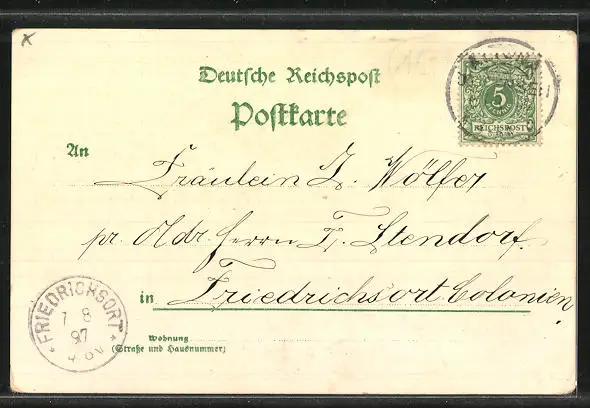 Deutsche Reichspost
Postkarte
5
REICHSPOST
An
Fräulein I. Wölfer
pr. Adr. Herrn F. Stendorf.
in Friedrichsort Colonien.
FRIEDRICHSORT
7 8
97
Wohnung
(Straße und Hausnummer)